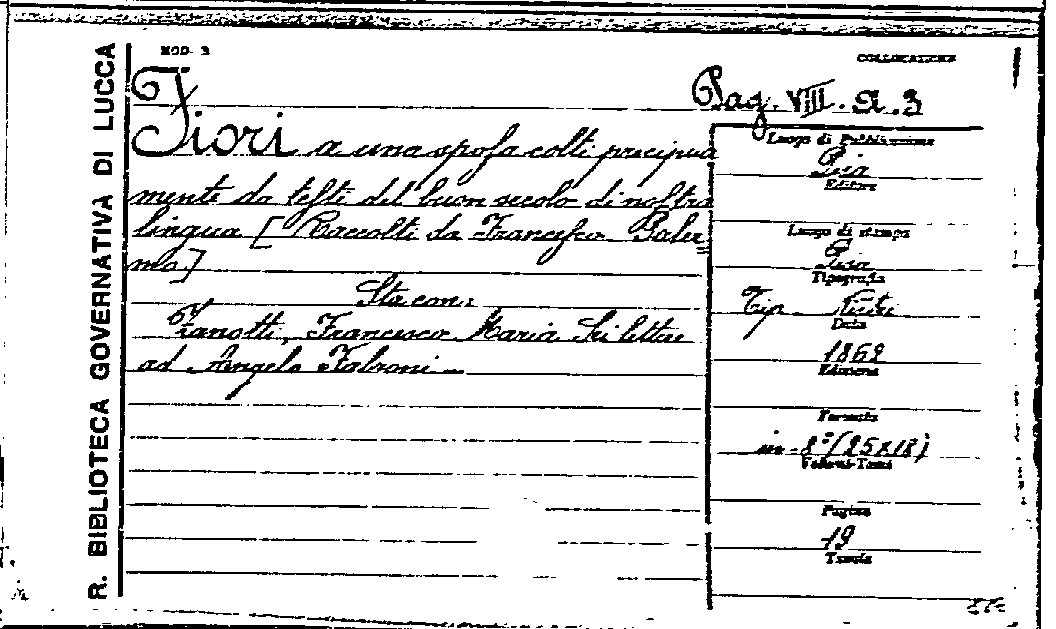 R. BIBLIOTECA GOVERNATIVA DI LUCCA
MOD. 3
COLLOCAZIONE
Pag. VIII. A. 3
Fiori a una sposa colti precipua
mente da testi del buon secolo di nostra
lingua [Raccolti da Francesco Paler=
mo]
Sta con:
Zanotti, Francesco Maria Sei lettere
ad Angelo Fabroni
Luogo di Pubblicazione
Pisa
Editore
Luogo di stampa
Pisa
Tipografia
Tip. Nistri
Data
1869
Edizione
Formato
in-8º (25x18)
Volumi-Tomi
Pagine
19
Tavole